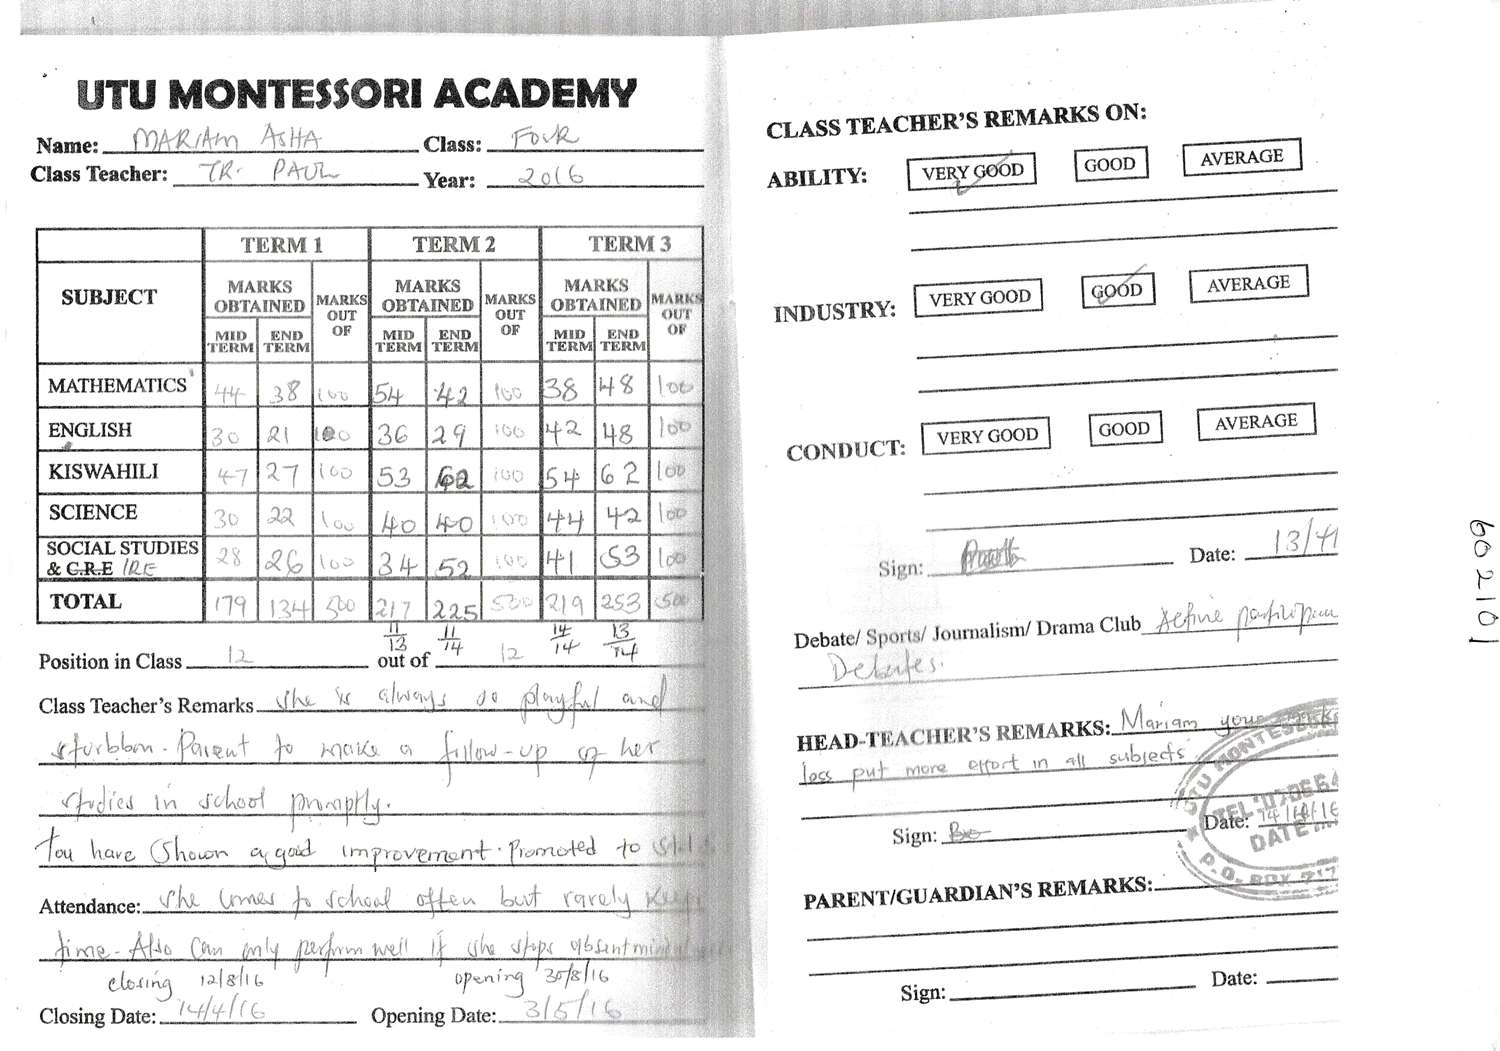 UTU MONTESSORI ACADEMY
Name: MARIAM ASHA Class: FOUR
Class Teacher: TR. PAUL Year: 2016
TERM 1 TERM 2 TERM 3
SUBJECT MARKS OBTAINED MARKS OUT OF MARKS OBTAINED MARKS OUT OF MARKS OBTAINED MARKS OUT OF
MID TERM END TERM MID TERM END TERM MID TERM END TERM
MATHEMATICS 44 38 100 54 42 100 38 48 100
ENGLISH 30 21 100 36 29 100 42 48 100
KISWAHILI 47 27 100 53 62 100 54 62 100
SCIENCE 30 22 100 40 40 100 44 42 100
SOCIAL STUDIES & C.R.E IRE 28 26 100 34 52 100 41 53 100
TOTAL 179 134 500 217 225 500 219 253 500
11/13 11/14 14/14 13/14
Position in Class 12 out of 12
Class Teacher's Remarks She is always so playful and
sturbbon. Parent to make a follow-up of her
studies in school promptly.
You have shown a good improvement. Promoted to
Attendance: She comes to school often but rarely keep
time. Also can only perform well if she stops
closing 12/8/16 opening 30/8/16
Closing Date: 14/4/16 Opening Date: 3/5/16
CLASS TEACHER'S REMARKS ON:
ABILITY: VERY GOOD GOOD AVERAGE
INDUSTRY: VERY GOOD GOOD AVERAGE
CONDUCT: VERY GOOD GOOD AVERAGE
Sign: Date: 13/4
Debate/ Sports/ Journalism/ Drama Club Active
Debates.
HEAD-TEACHER'S REMARKS: Mariam your
loss put more effort in all subjects
Sign: Date: 14/4/16
UTU MONTESSORI
TEL: 07066
DATE
P.O. BOX 717
PARENT/GUARDIAN'S REMARKS:
Sign: Date:
602101